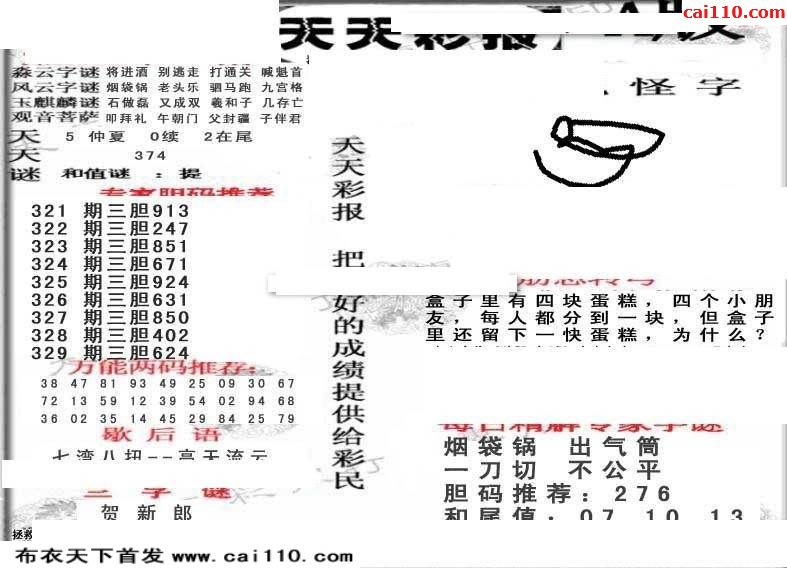 cai110.com
天天彩报
怪字
森云字谜 将进酒 别逃走 打通关 喊魁首
风云字谜 烟袋锅 老头乐 驷马跑 九宫格
玉麒麟谜 石做磊 又成双 羲和子 几存亡
观音菩萨 叩拜礼 午朝门 父封疆 子伴君
天 5 仲夏 0续 2在尾
天 374
谜 和值谜 ：提
专家胆码推荐
321 期三胆913
322 期三胆247
323 期三胆851
324 期三胆671
325 期三胆924
326 期三胆631
327 期三胆850
328 期三胆402
329 期三胆624
万能两码推荐：
38 47 81 93 49 25 09 30 67
72 13 59 12 39 54 02 94 68
36 02 35 14 45 29 84 25 79
歇后语
七湾八扭--高天流云
三字谜
贺新郎
天天彩报 把好的成绩提供给彩民
盒子里有四块蛋糕，四个小朋
友，每人都分到一块，但盒子
里还留下一快蛋糕，为什么？
每日精解专家字谜
烟袋锅 出气筒
一刀切 不公平
胆码推荐：276
和尾值：07 10 13
布衣天下首发 www.cai110.com